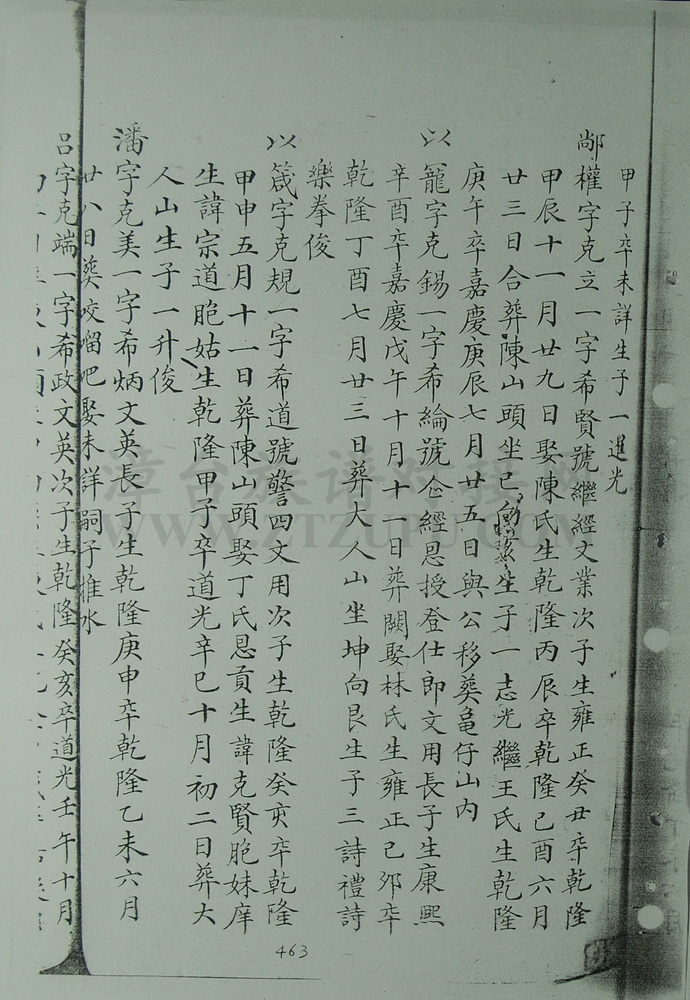 甲子卒未詳生子一進光
鄗權字克立一字希賢號繼經文業次子生雍正癸丑卒乾隆
甲辰十一月廿九日娶陳氏生乾隆丙辰卒乾隆己酉六月
廿三日合葬陳山頭坐巳生子一志光繼王氏生乾隆
庚午卒嘉慶庚辰七月廿五日與公移葬黽仔山内
以寵字克錫一字希綸號仚經恩授登仕郎文用長子生康熙
辛酉卒嘉慶戊午十月十一日葬闕娶林氏生雍正己卯卒
乾隆丁酉七月廿三日葬大人山坐坤向艮生子三詩禮詩
樂拳俊
以箴字克規一字希道號警四文用次子生乾隆癸亥卒乾隆
甲申五月十一日葬陳山頭娶丁氏恩貢生諱克賢胞妹庠
生諱宗道胞姑生乾隆甲子卒道光辛巳十月初二日葬大
人山生子一升俊
潘字克美一字希炳文英長子生乾隆庚申卒乾隆乙未六月
廿八日葬咬𠺕吧娶未詳嗣子惟水
吕字克端一字希政文英次子生乾隆癸亥卒道光壬午十月
漳台族谱对接网
WWW.ZTZUPU.COM
463